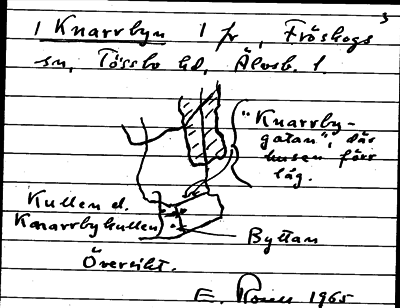 3
1 Knarrbyn 1 fr, Fröskogs
sn, Tössbo hd, Älvsb. l.
"Knarrby-
gatan", där
husen förr
låg.
Kullen el.
Knarrbykullen
Byttan
Översikt.
E. 1965